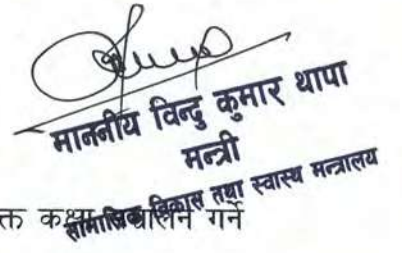 माननीय विन्दु कुमार थापा
मन्त्री
सामाजिक विकास तथा स्वास्थ्य मन्त्रालय
क्त कक्षा गर्ने